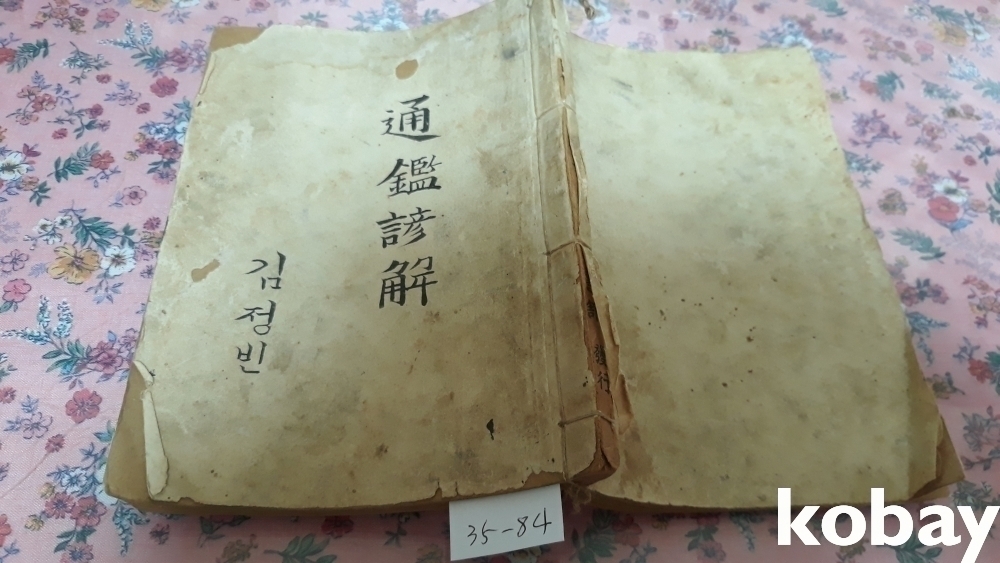 通鑑諺解
김정빈
發行
35-84
kobay